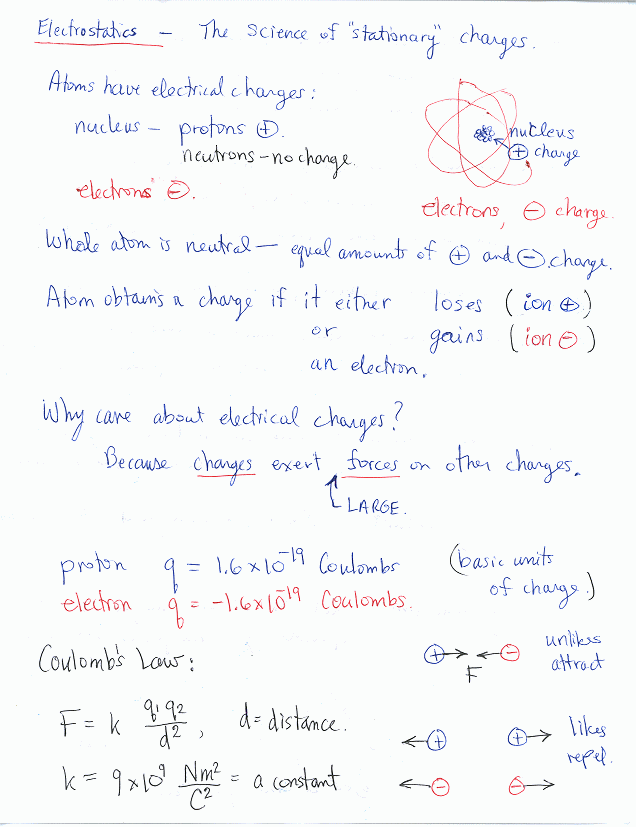 Electrostatics – The science of "stationary" charges.
Atoms have electrical charges:
nucleus – protons ⊕.
neutrons – no charge.
electrons ⊖.
nucleus
⊕ charge
electrons, ⊖ charge.
Whole atom is neutral – equal amounts of ⊕ and ⊖ charge.
Atom obtains a charge if it either loses (ion ⊕)
or gains (ion ⊖)
an electron.
Why care about electrical charges?
Because charges exert forces on other charges.
LARGE.
proton q = 1.6 x 10^-19 Coulombs (basic units
electron q = -1.6 x 10^-19 Coulombs. of charge.)
Coulomb's Law:
⊕ ⊖ unlikes
F attract
F = k q1 q2 / d^2, d = distance.
⊕ ⊕ likes
⊖ ⊖ repel.
k = 9 x 10^9 Nm^2 / C^2 = a constant